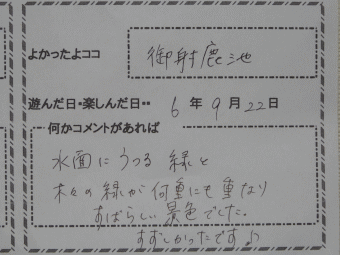 よかったよココ 御射鹿池
遊んだ日・楽しんだ日・・ 6 年 9 月 22 日
何かコメントがあれば
水面にうつる 緑と
木々の緑が何重にも重なり
すばらしい景色でした。
すずしかったです♪